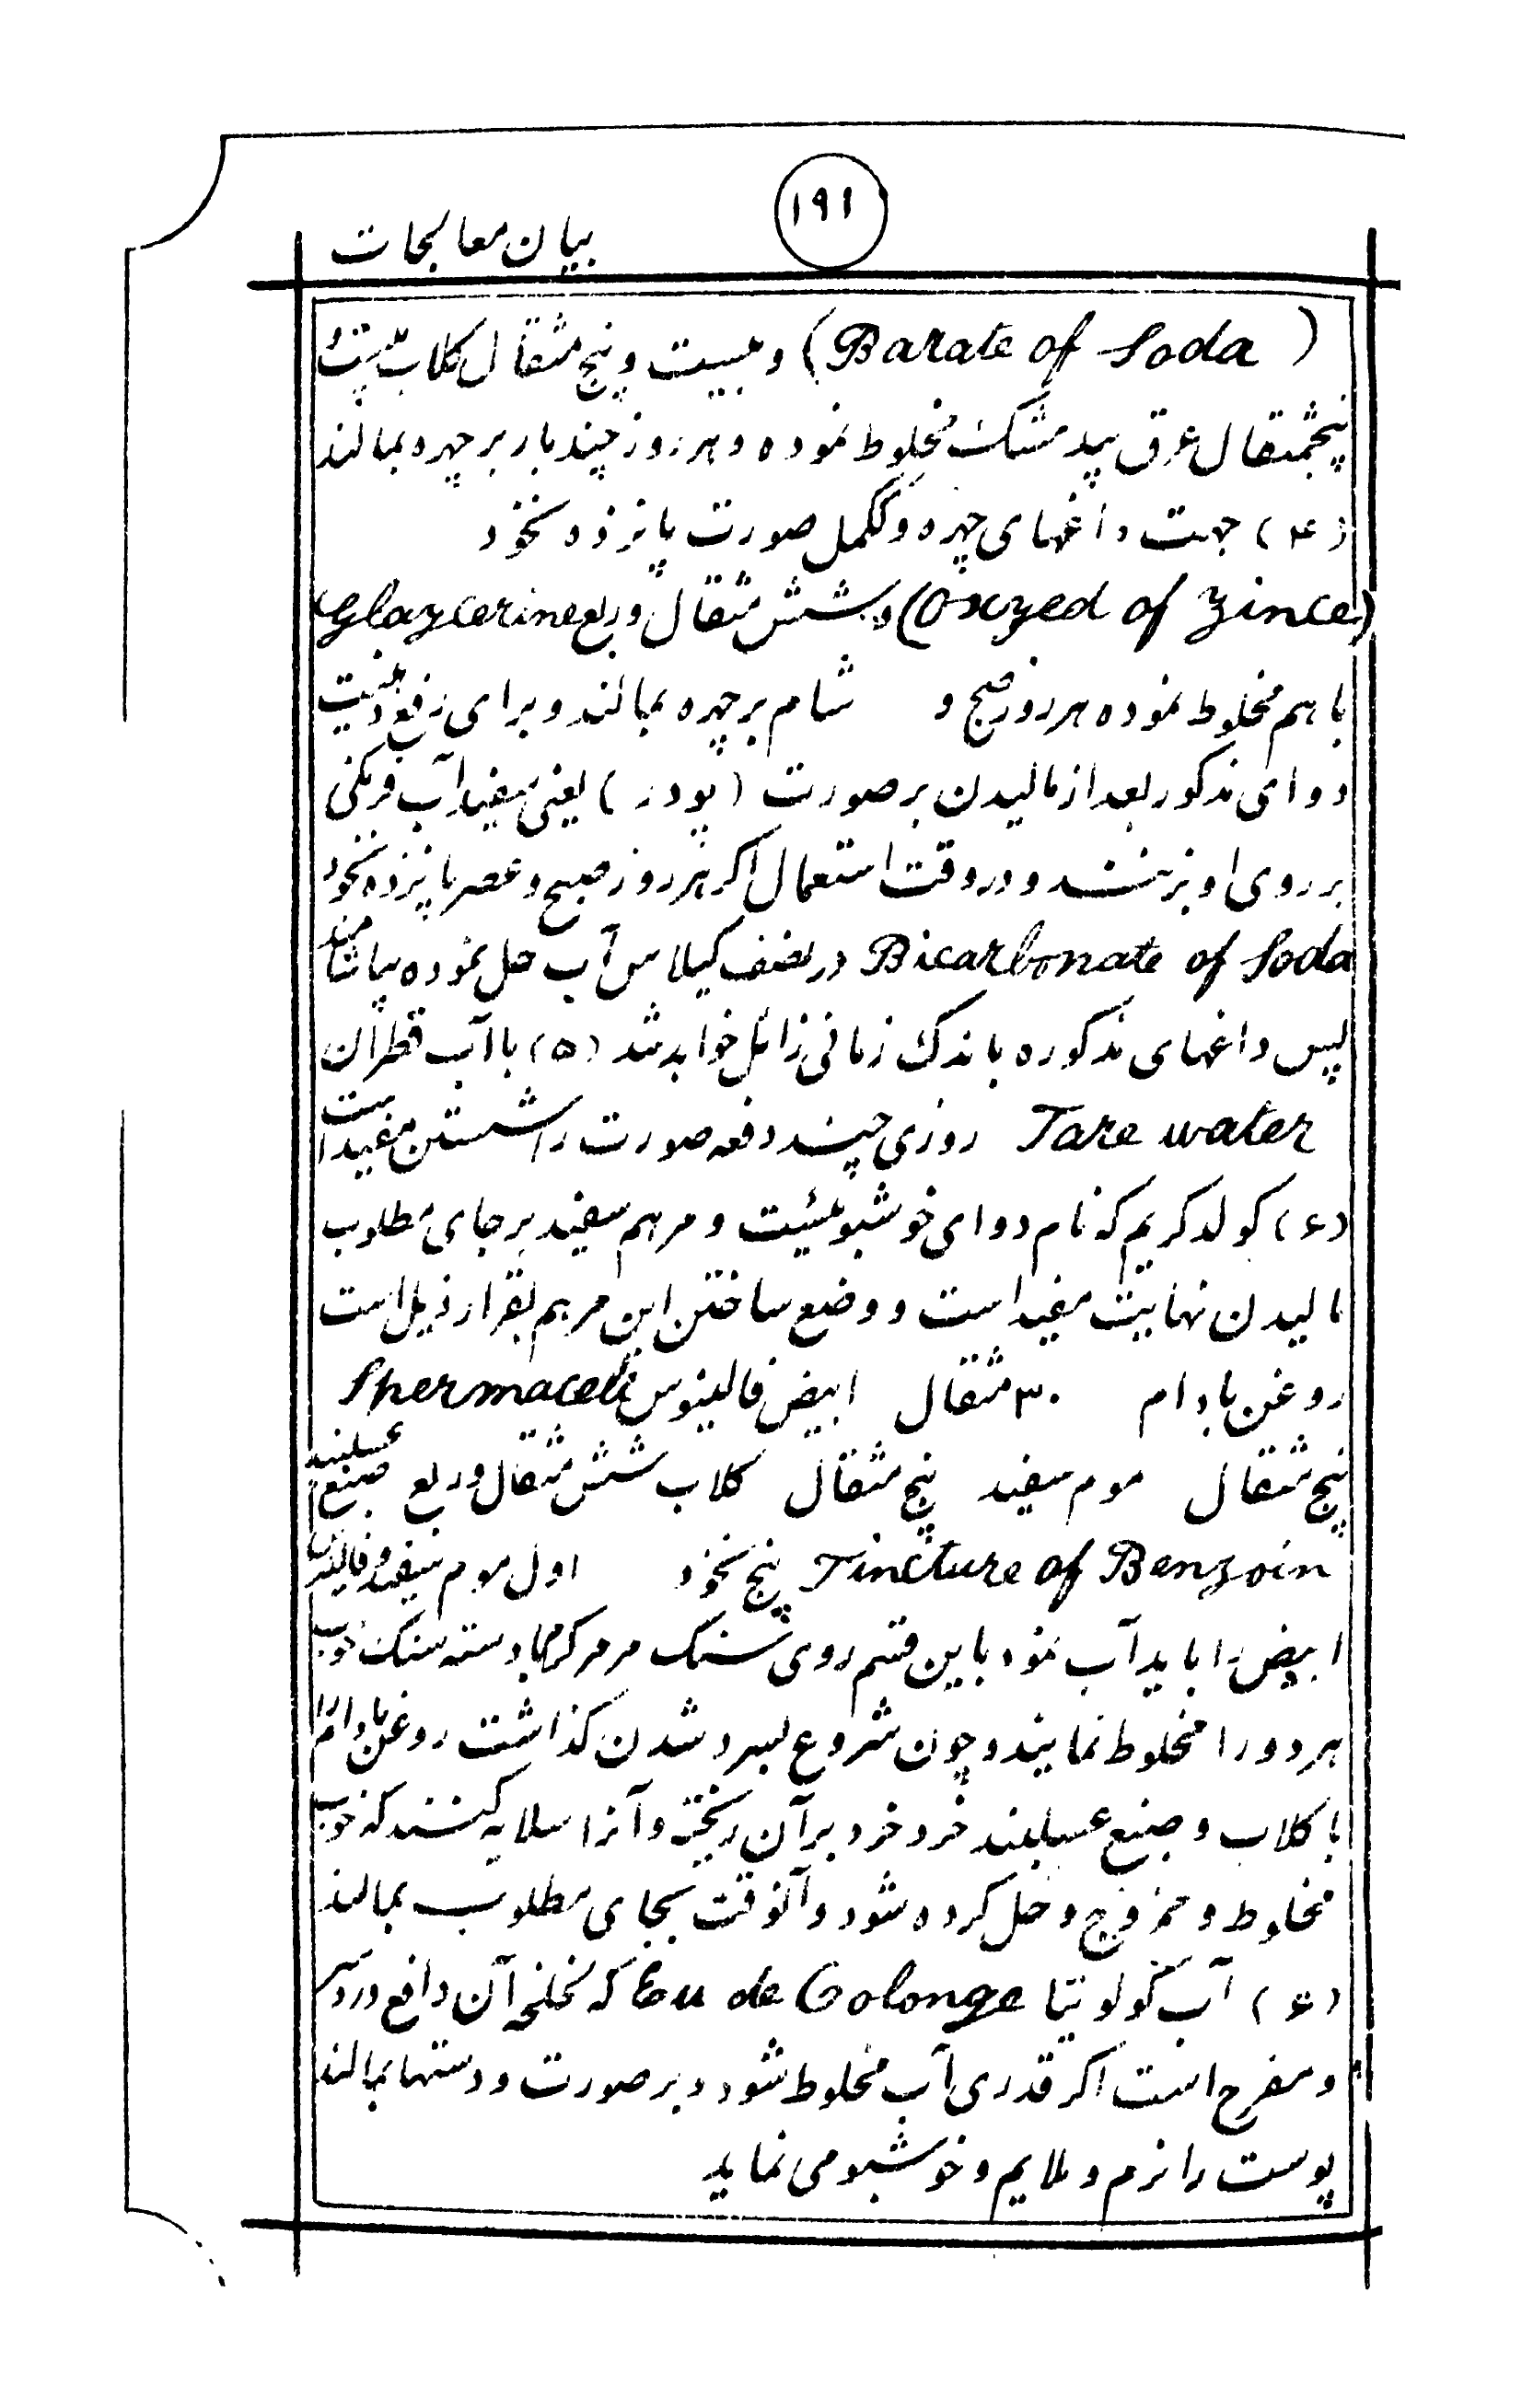 ۱۹۱
بیان معالجات
(Barate of Soda) و بیست و پنج مثقال کلاب بیست و
پنجمثقال عرق بید مشک مخلوط نموده و هر روز چند بار بر چهره بمالند
(۴) جهت داغهای چهره و ککمل صورت پانزده نخود
(Oxyed of Zince) و شش مثقال و ربع Glaycerine
با هم مخلوط نموده هر روز صبح و شام بر چهره بمالند و برای رفع دهنیت
دوای مذکور بعد از مالیدن بر صورت (پودر) یعنی سفیداب فرنگی
بر روی او بزنند و در وقت استعمال اکر هر روز صبح و عصر پانزده نخود
Bicarbonate of Soda در نصف کیلاس آب حل نموده بیاشامند
پس داغهای مذکوره باندک زمانی زائل خواهد شد (۵) با آب قطران
Tare water روزی چند دفعه صورت را شستن مفید است
(۶) کولد کریم که نام دوای خوشبوئیست و مرهم سفید بر جای مطلوب
مالیدن نهایت مفید است و وضع ساختن این مرهم بقرار ذیل است
روغن بادام ۳۰ مثقال ابیض فالینوس Spermaceti
پنج مثقال موم سفید پنج مثقال کلاب شش مثقال و ربع صنبع عسلبند
Tincture of Benzoin پنج نخود اول موم سفید و فالینوس
ابیض را باید آب نمود باین قسم روی سنک مرمر کرم با دسته سنک خوب
هر دو را مخلوط نمایند و چون شروع بسرد شدن کذاشت روغن بادام را
با کلاب و صنبع عسلبند خرد خرد بر آن ریخته و آنرا سلایه کنند که خوب
مخلوط و ممزوج و حل کرده شود و آنوقت بجای مطلوب بمالند
(۶) آب کولونیا Eu de Colonge که لخلخه آن دافع درد سر
و مفرح است اکر قدری آب مخلوط شود و بر صورت و دستها بمالند
پوست را نرم و ملایم و خوشبو می نماید